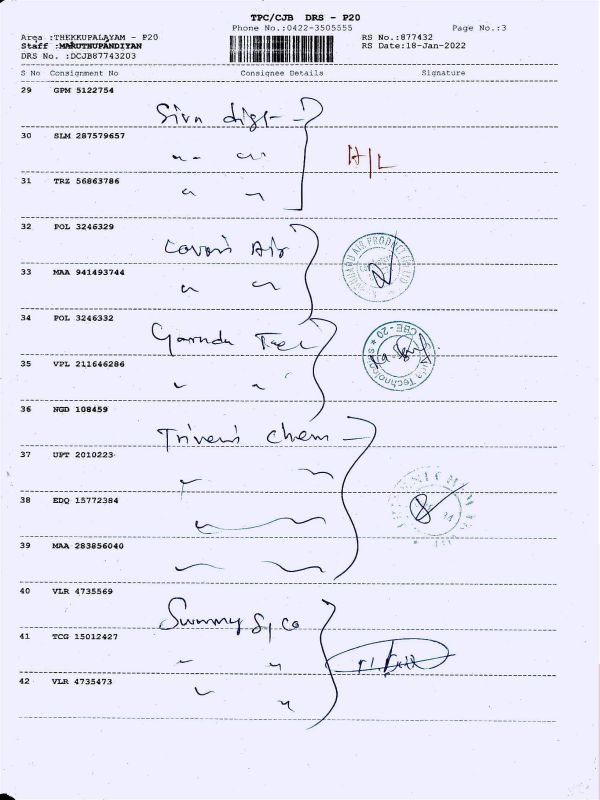 TPC/CJB DRS - P20
Phone No.:0422-3505555 Page No.:3
Area :THEKKUPALAYAM - P20 RS No.:877432
Staff :MARUTHUPANDIYAN RS Date:18-Jan-2022
DRS No. :DCJB87743203
S No Consignment No Consignee Details Signature
29 GPM 5122754
Siva digi
30 SLM 287579657
H/L
31 TRZ 56863786
32 POL 3246329
Covai Air
33 MAA 941493744
34 POL 3246332
Garuda Tec
35 VPL 211646286
36 NGD 108459
Triveni Chem
37 UPT 2010223
38 EDQ 15772384
39 MAA 283856040
40 VLR 4735569
Summy S/Co
41 TCG 15012427
42 VLR 4735473